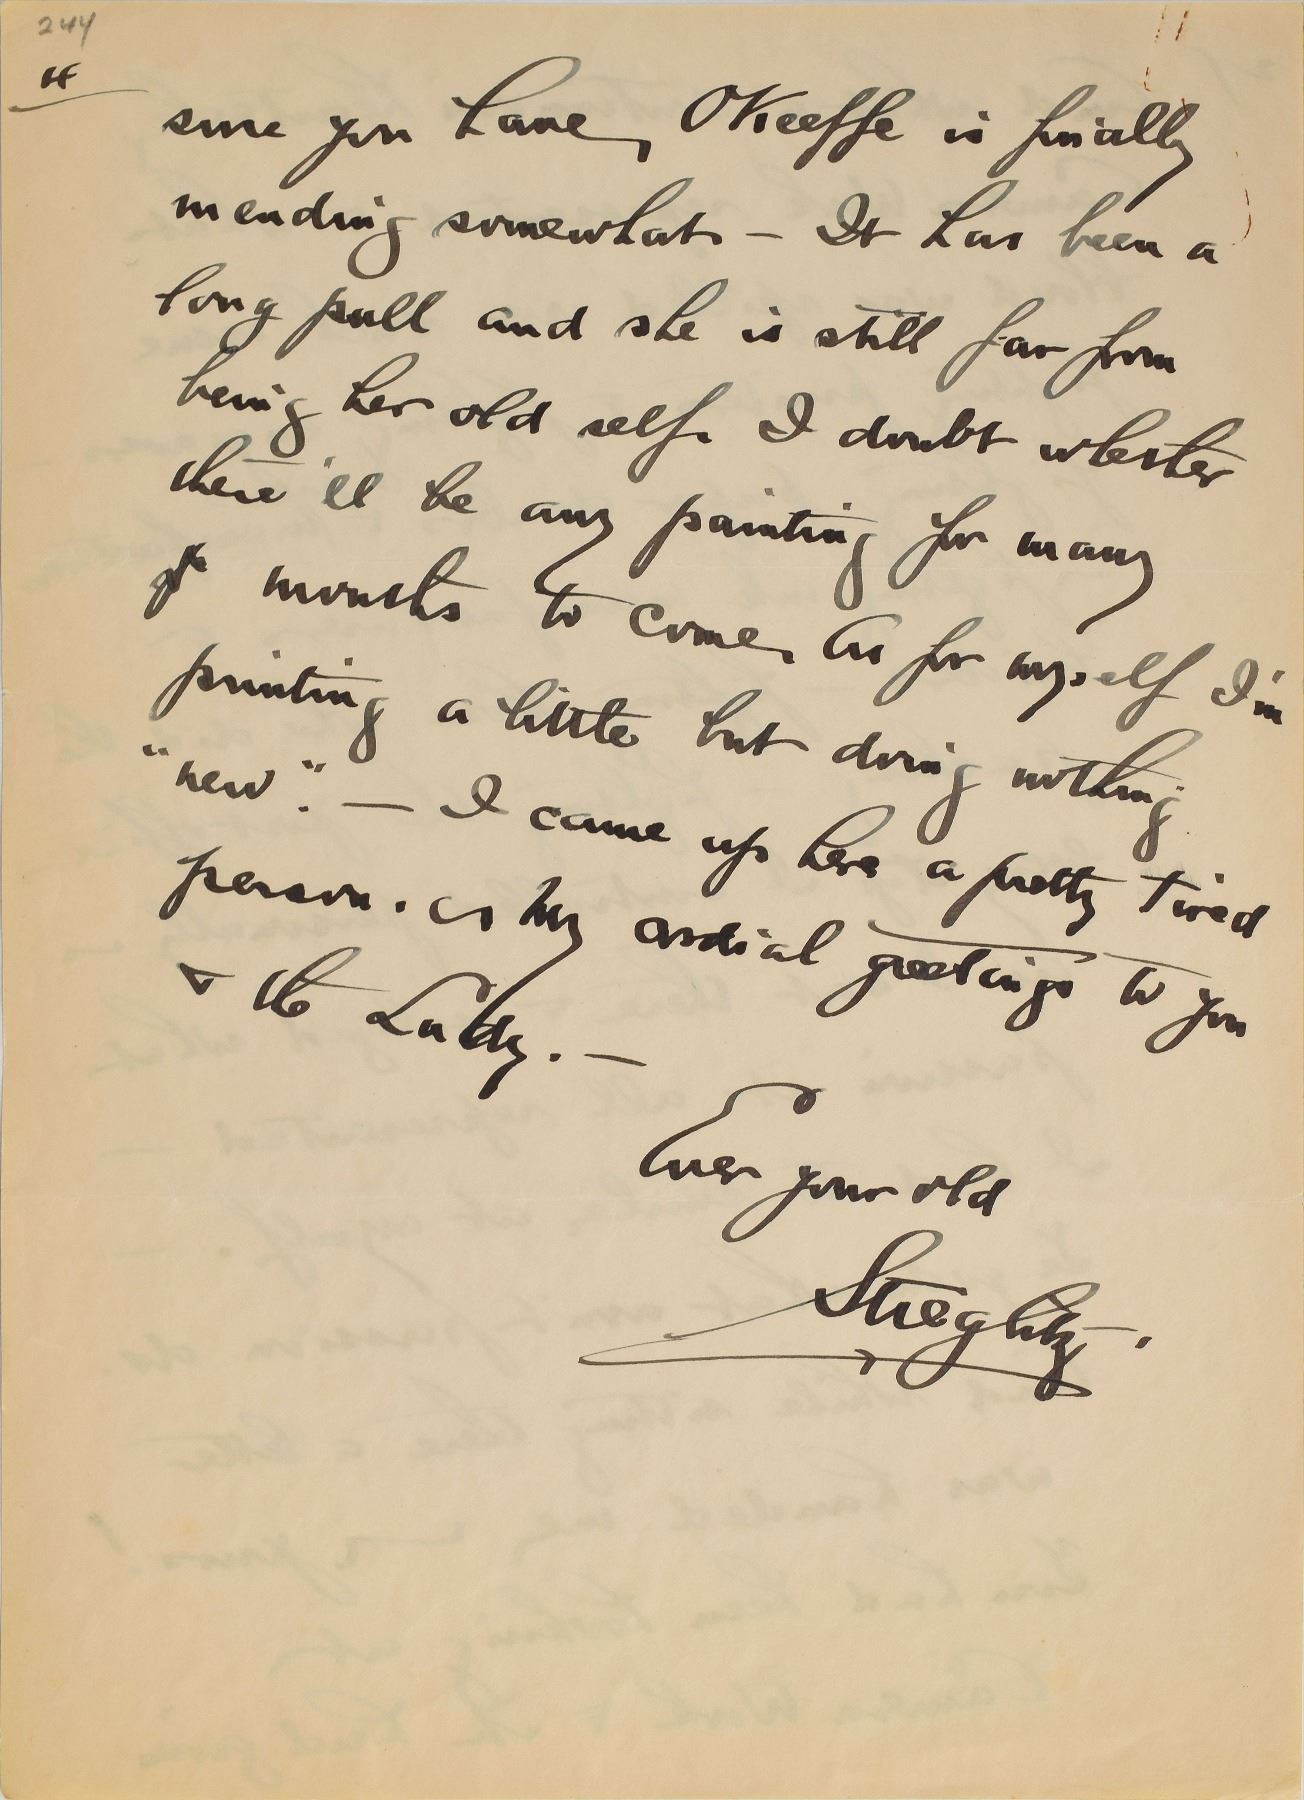 244
4
sure you have, OKeeffe is finally
mending somewhat — It has been a
long pull and she is still far from
being her old self. I doubt whether
there'll be any painting for many
months to come. As for myself I'm
printing a little but doing nothing
"new". — I came up here a pretty tired
person. My cordial greetings to you
& the Lady. —
Ever your old
Stieglitz.